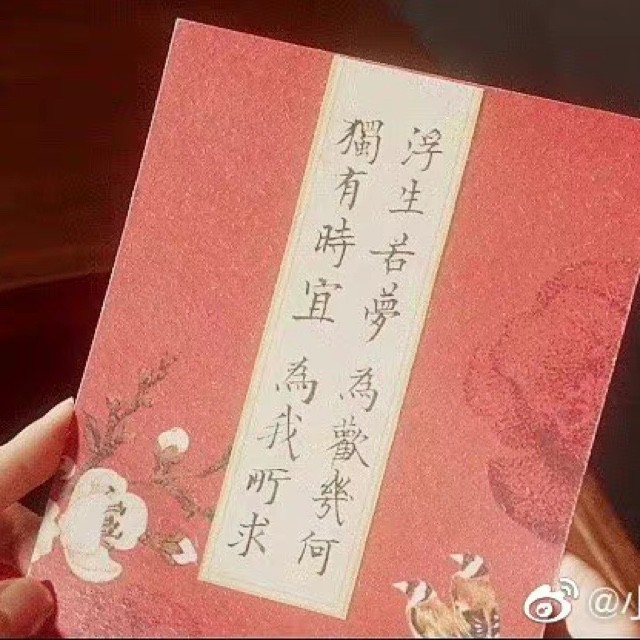 浮生若夢 為歡幾何
獨有時宜 為我所求
@小